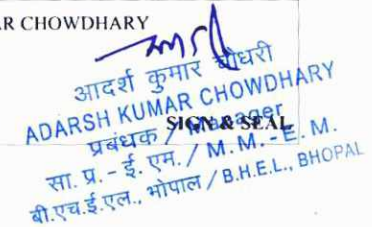 AR CHOWDHARY
आदर्श कुमार चौधरी
ADARSH KUMAR CHOWDHARY
प्रबंधक / Manager
SIGN & SEAL
सा. प्र. - ई. एम. / M. M. - E. M.
बी.एच.ई.एल., भोपाल / B.H.E.L., BHOPAL